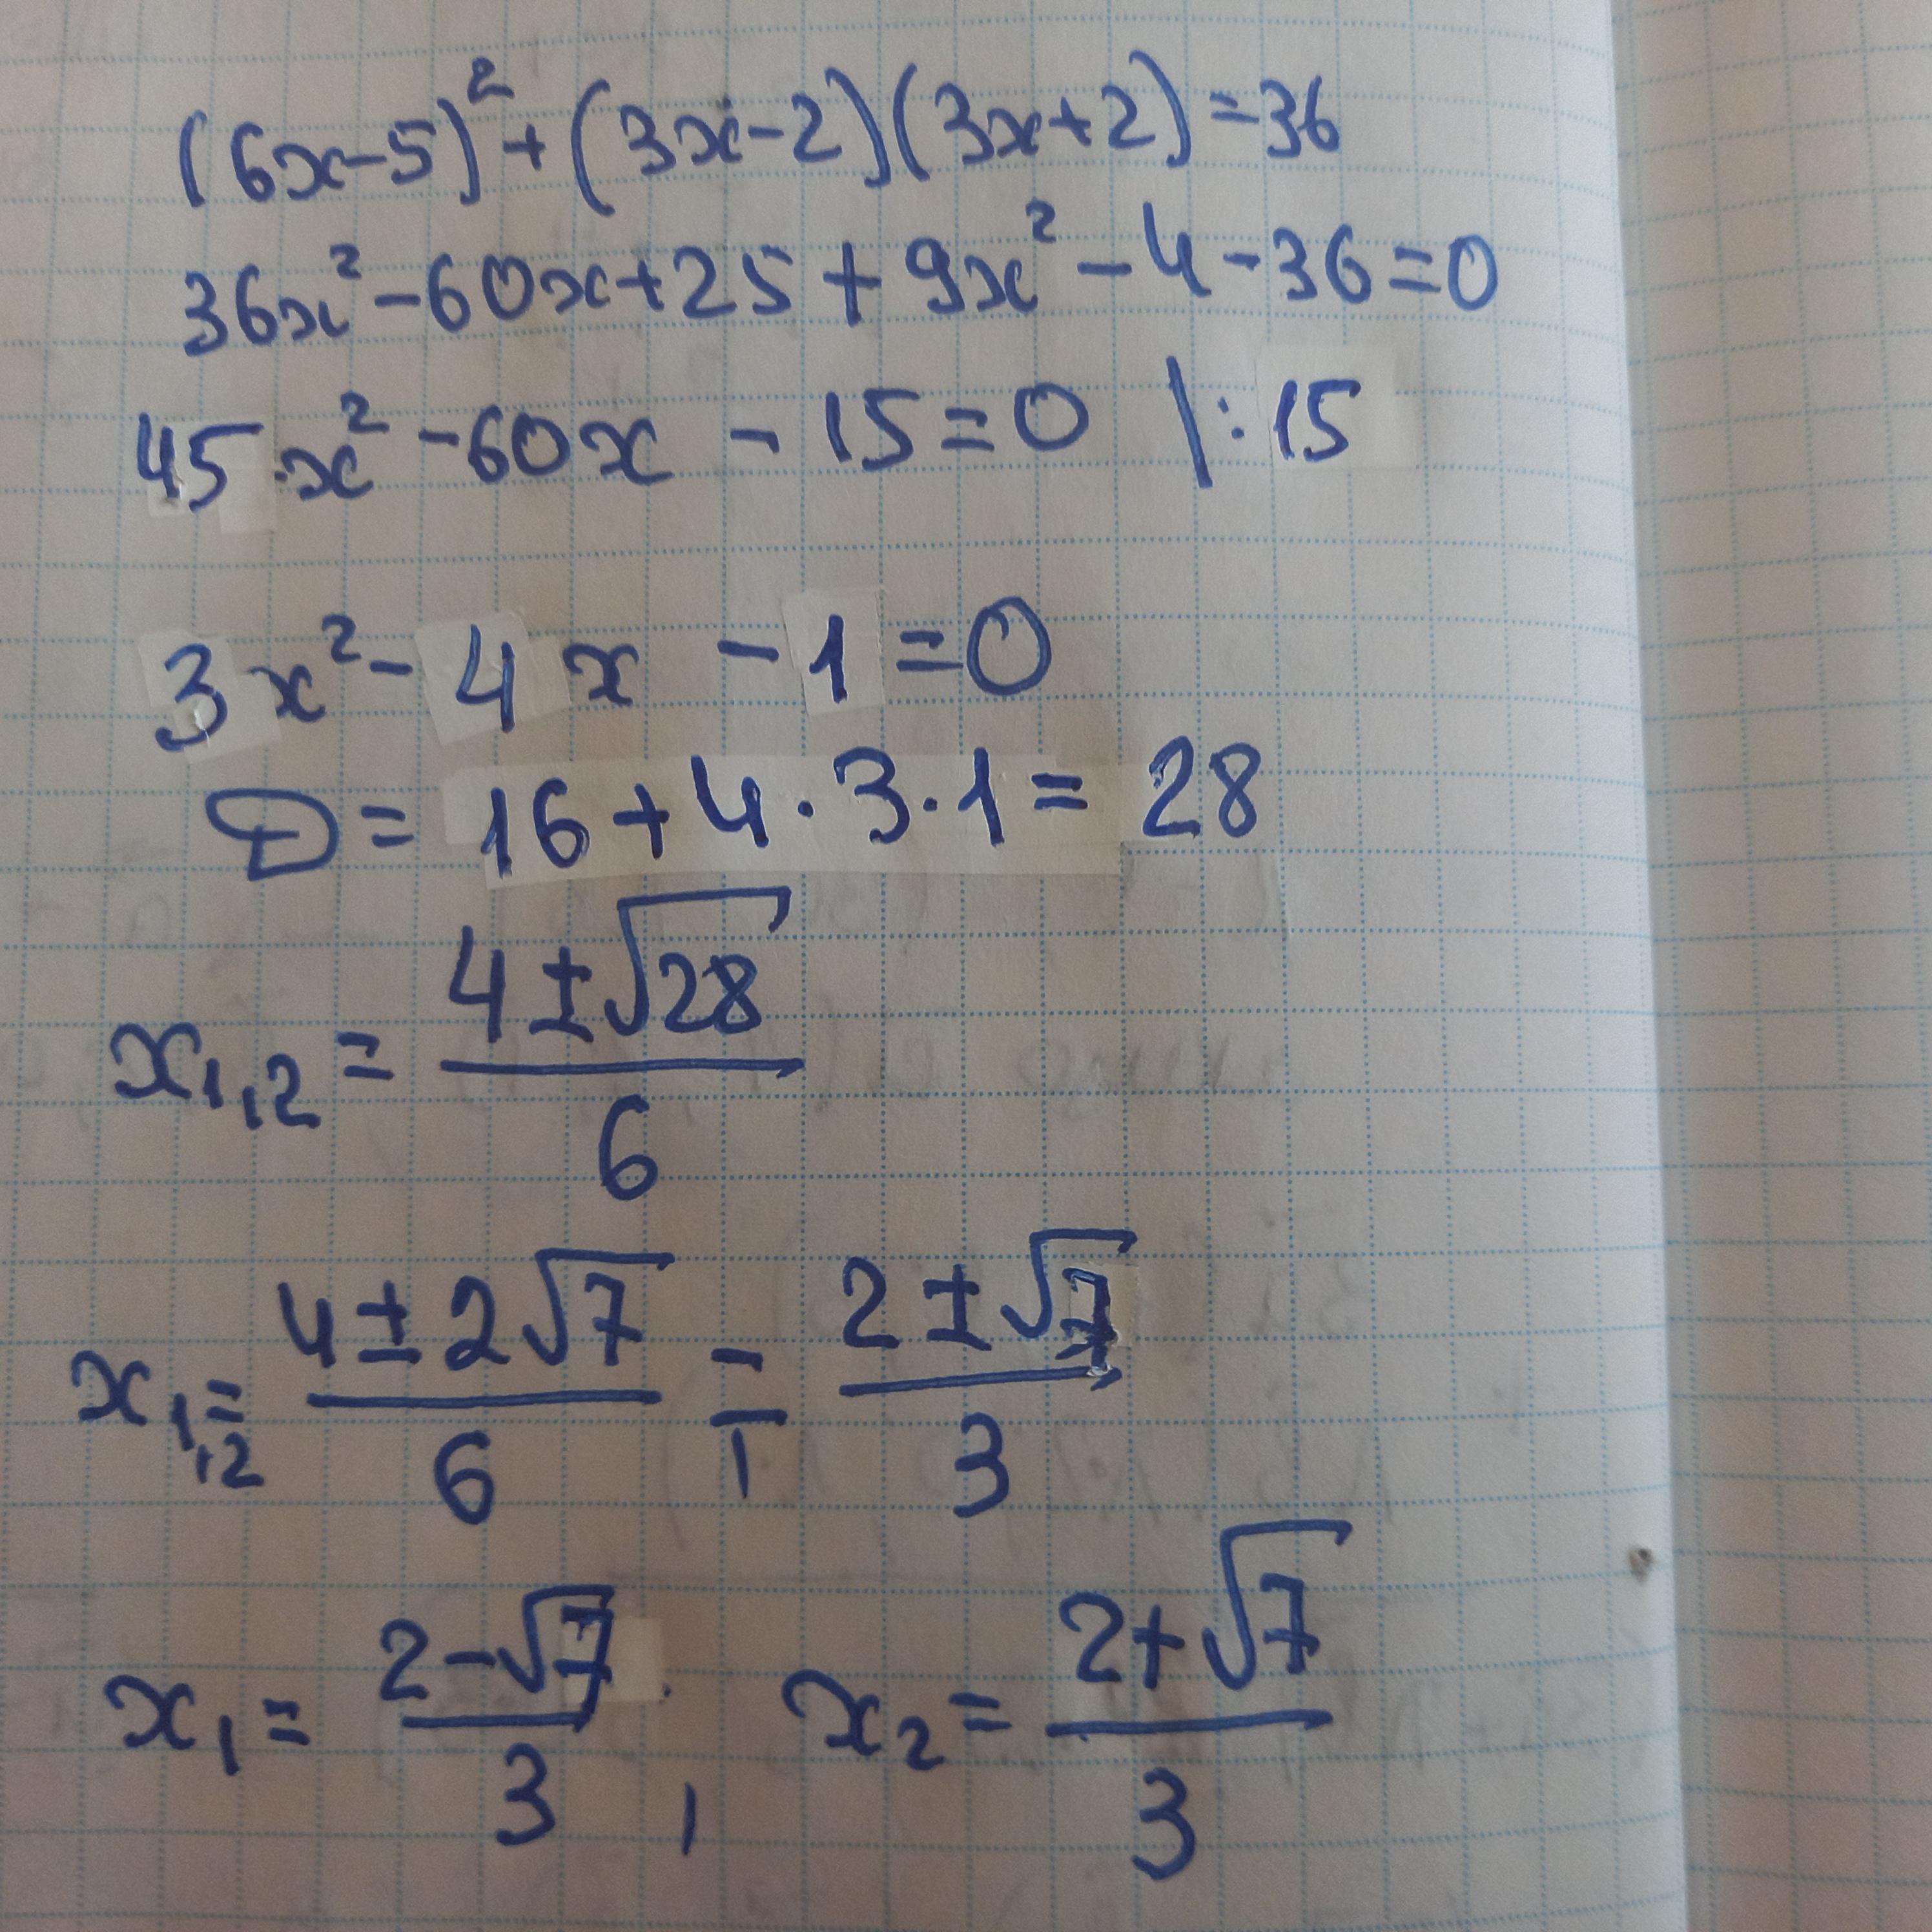 (6x-5)² + (3x-2)(3x+2) = 36
36x² - 60x + 25 + 9x² - 4 - 36 = 0
45·x² - 60x - 15 = 0 | : 15
3x² - 4x - 1 = 0
D = 16 + 4·3·1 = 28
x₁,₂ = (4 ± √28)/6
x₁,₂ = (4 ± 2√7)/6 = (2 ± √7)/3
x₁ = (2 - √7)/3, x₂ = (2 + √7)/3